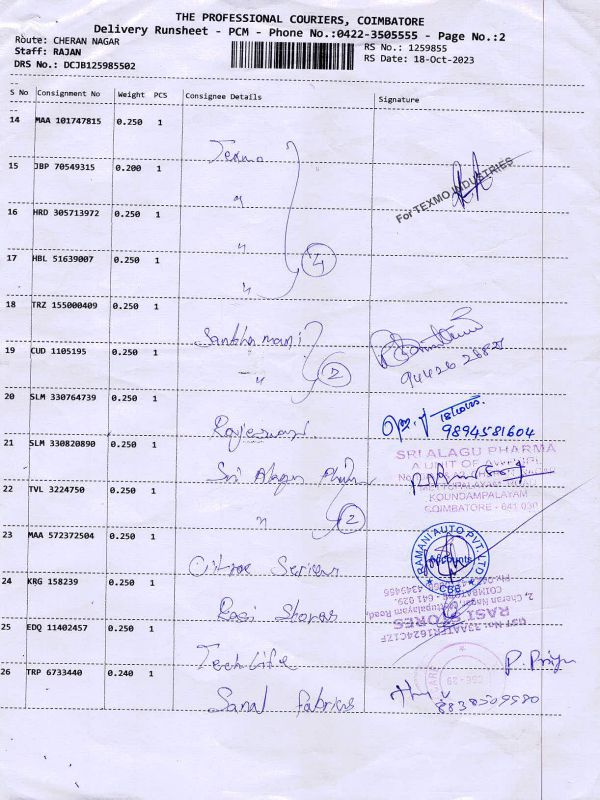 THE PROFESSIONAL COURIERS, COIMBATORE
Delivery Runsheet - PCM - Phone No.:0422-3505555 - Page No.:2
Route: CHERAN NAGAR
Staff: RAJAN
DRS No.: DCJB125985502
RS No.: 1259855
RS Date: 18-Oct-2023
S No Consignment No Weight PCS Consignee Details Signature
14 MAA 101747815 0.250 1 Texmo
15 JBP 70549315 0.200 1 "
For TEXMO INDUSTRIES
16 HRD 305713972 0.250 1 "
17 HBL 51639007 0.250 1 " 4
18 TRZ 155000409 0.250 1
19 CUD 1105195 0.250 1 " 2
20 SLM 330764739 0.250 1 Rajeswari
9894581604
21 SLM 330820890 0.250 1 Sri Alagu
SRI ALAGU PHARMA
A UNIT OF
KOUNDAMPALAYAM
COIMBATORE - 641 030
22 TVL 3224750 0.250 1 " 2
23 MAA 572372504 0.250 1
RAMANI AUTO PVT. LTD
Accounts
CBE
24 KRG 158239 0.250 1 Rasi Stores
RASI STORES
2, Cheran Nagar,
COIMBATORE - 641 029.
25 EDQ 11402457 0.250 1 Techlife
26 TRP 6733440 0.240 1 Fabrics